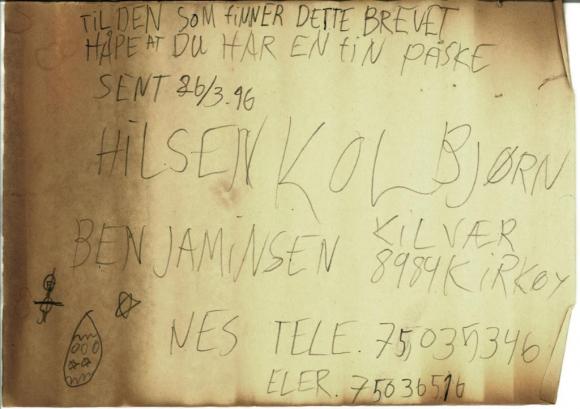 TIL DEN SOM FINNER DETTE BREVET
HÅPE AT DU HAR EN FIN PÅSKE
SENT 26/3.96
HILSEN KOLBJØRN
BENJAMINSEN KILVÆR
8984 KIRKØY
NES TELE. 75035346
ELER. 75036516